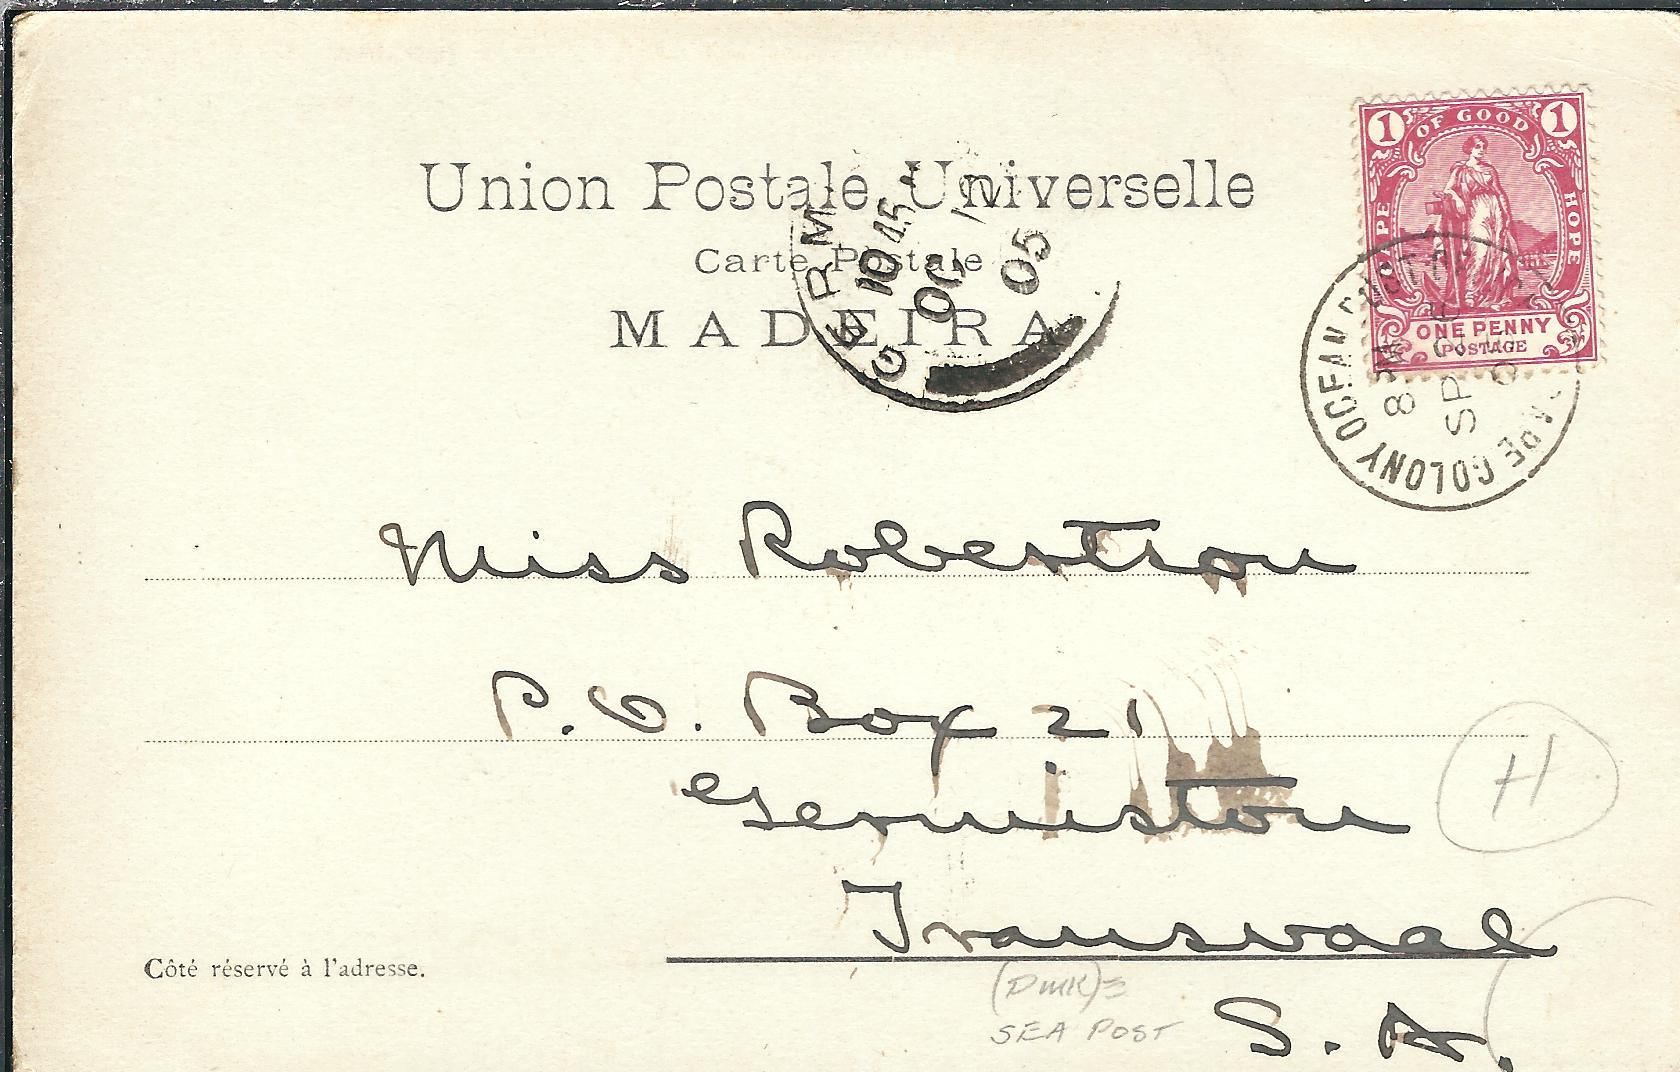 1 OF GOOD 1
HOPE
ONE PENNY
POSTAGE
Union Postale Universelle
Carte Postale
MADEIRA
GERM
10 45
OC
05
CAPE COLONY OCEAN POST OF
8 PM
SP
Miss Robertson
P.O. Box 21
Germiston
Transvaal
S. A.
H
Côté réservé à l'adresse.
(DMK)
SEA POST